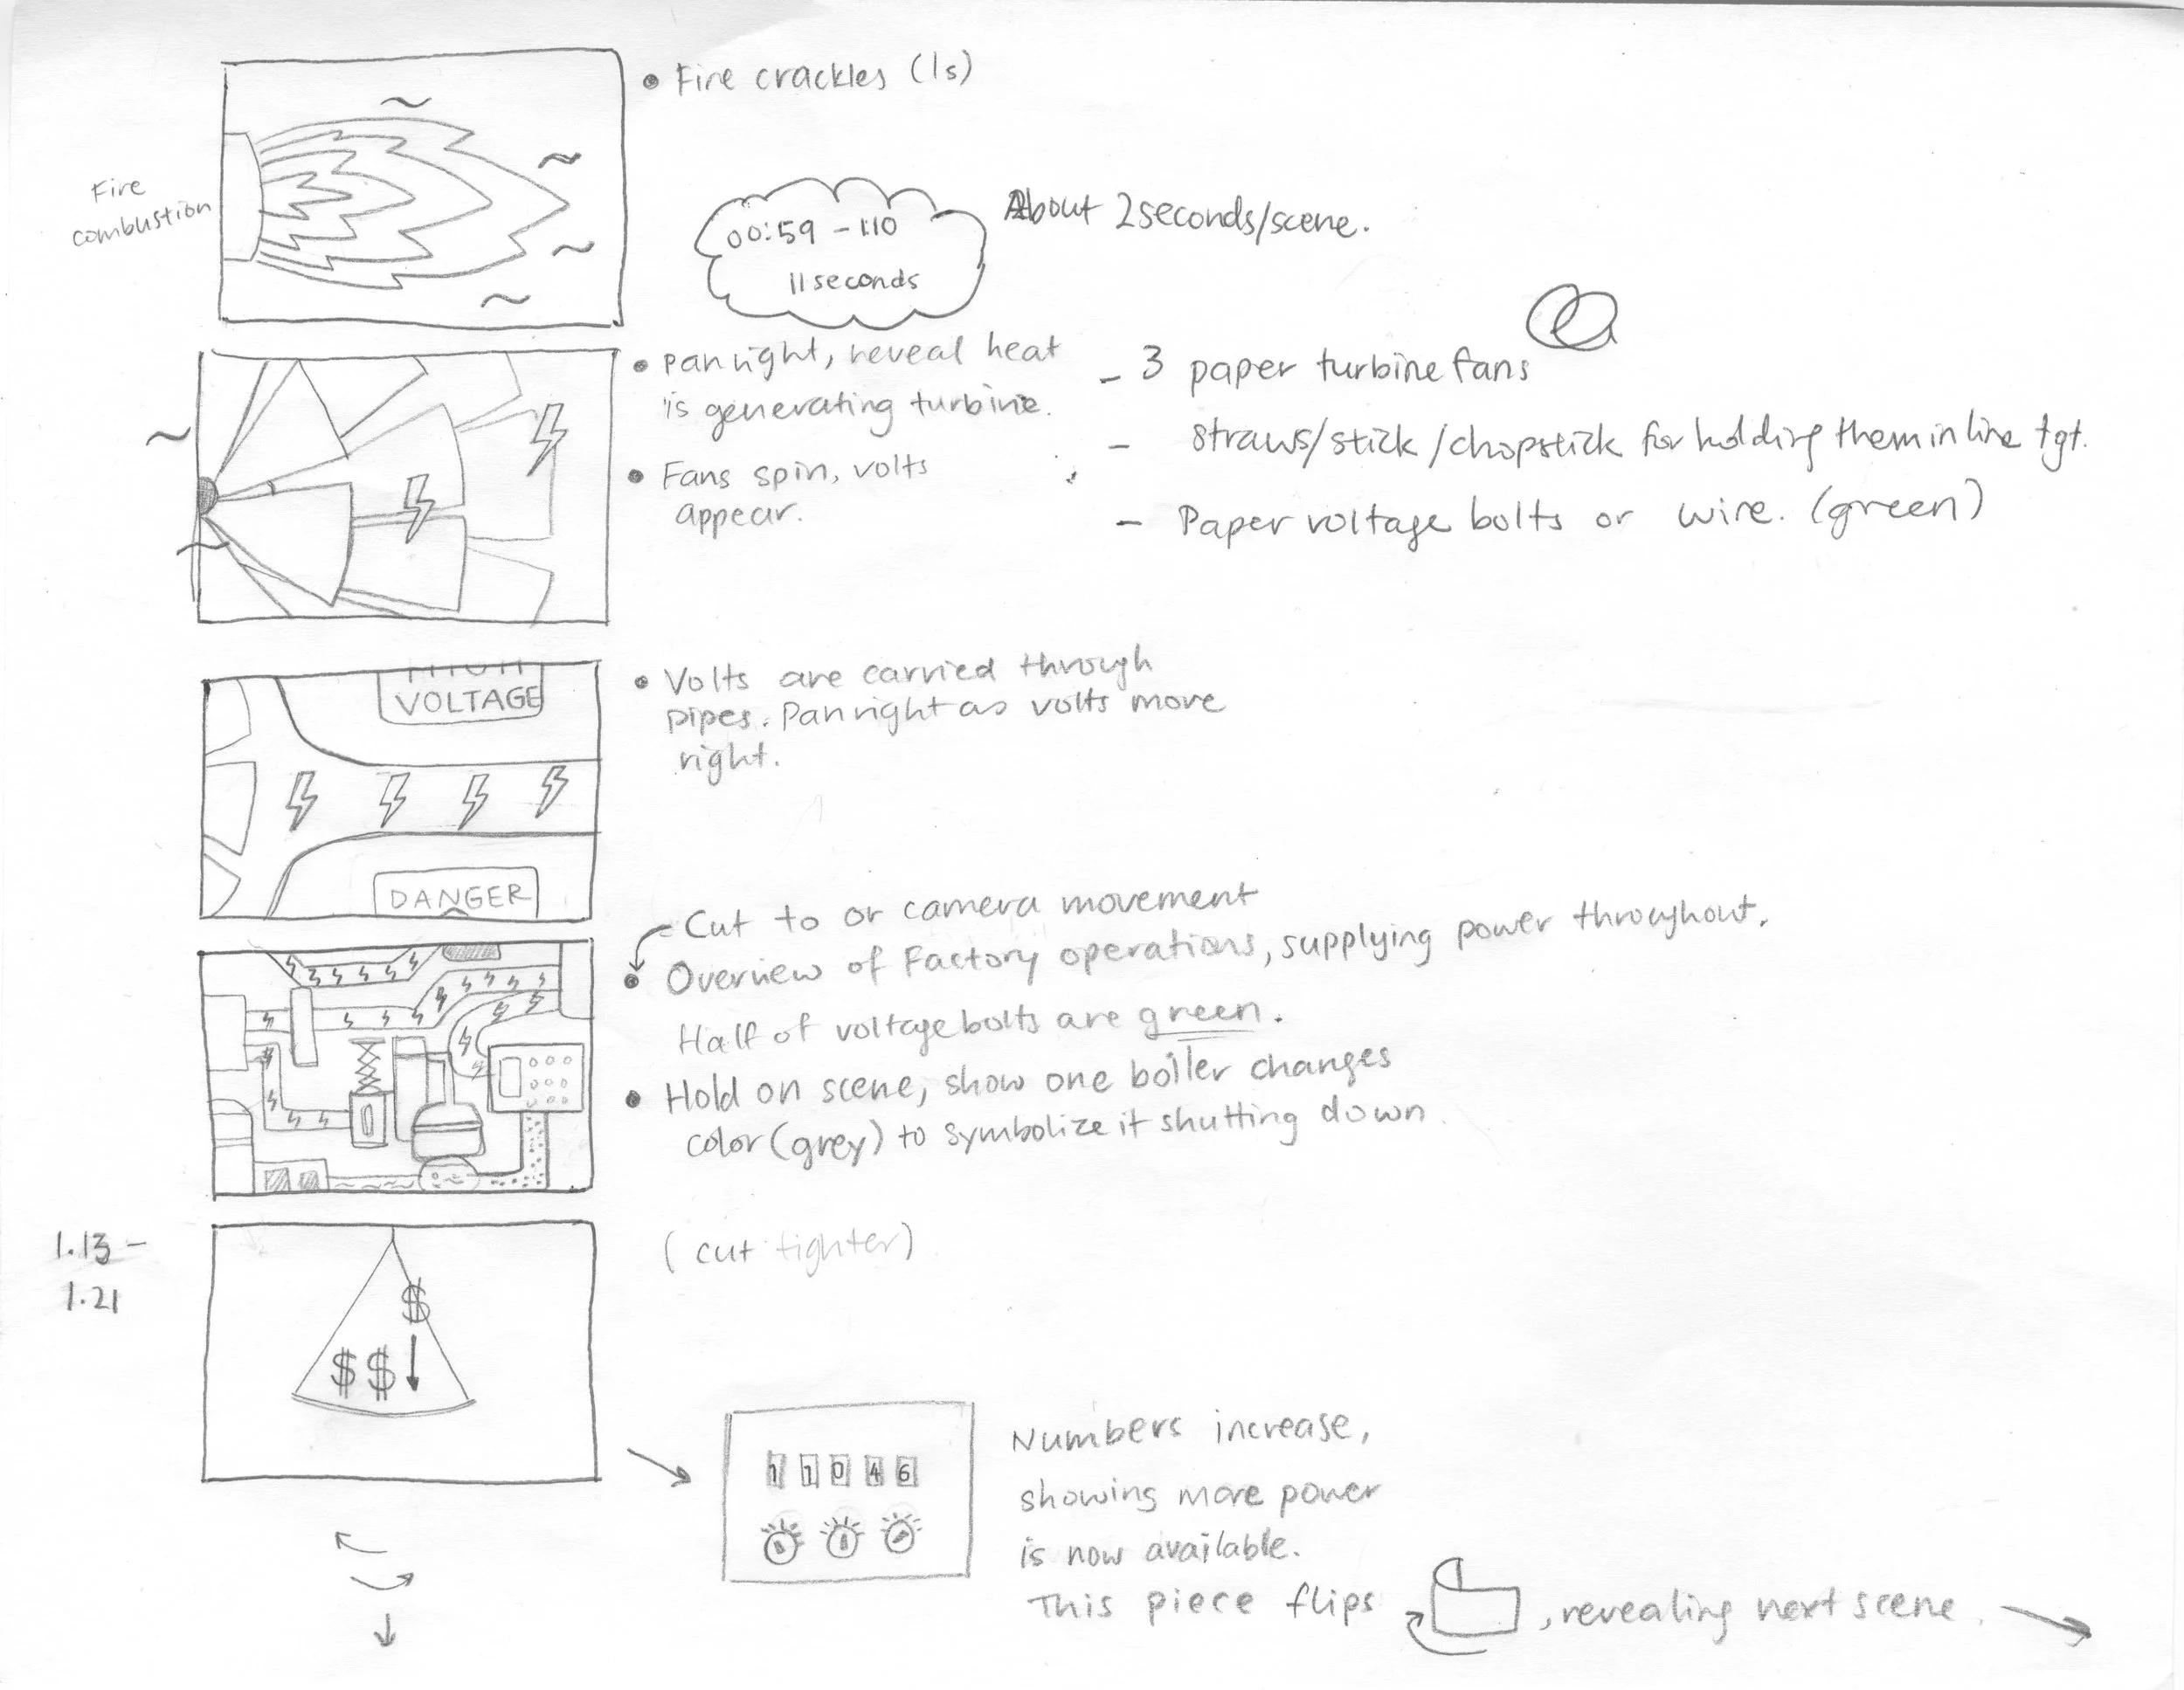 Fire crackles (1s)
Fire
combustion
00:59 - 1:10
11 seconds
About 2 seconds/scene.
Pan right, reveal heat
is generating turbine.
Fans spin, volts
appear.
- 3 paper turbine fans
- straws/stick/chopstick for holding them in line tgt.
- Paper voltage bolts or wire. (green)
HIGH
VOLTAGE
DANGER
Volts are carried through
pipes. Pan right as volts move
right.
Cut to or camera movement
Overview of Factory operations, supplying power throughout.
Half of voltage bolts are green.
Hold on scene, show one boiler changes
color (grey) to symbolize it shutting down.
1.13 -
1.21
(cut tighter)
$
$$
11046
Numbers increase,
showing more power
is now available.
This piece flips , revealing next scene.